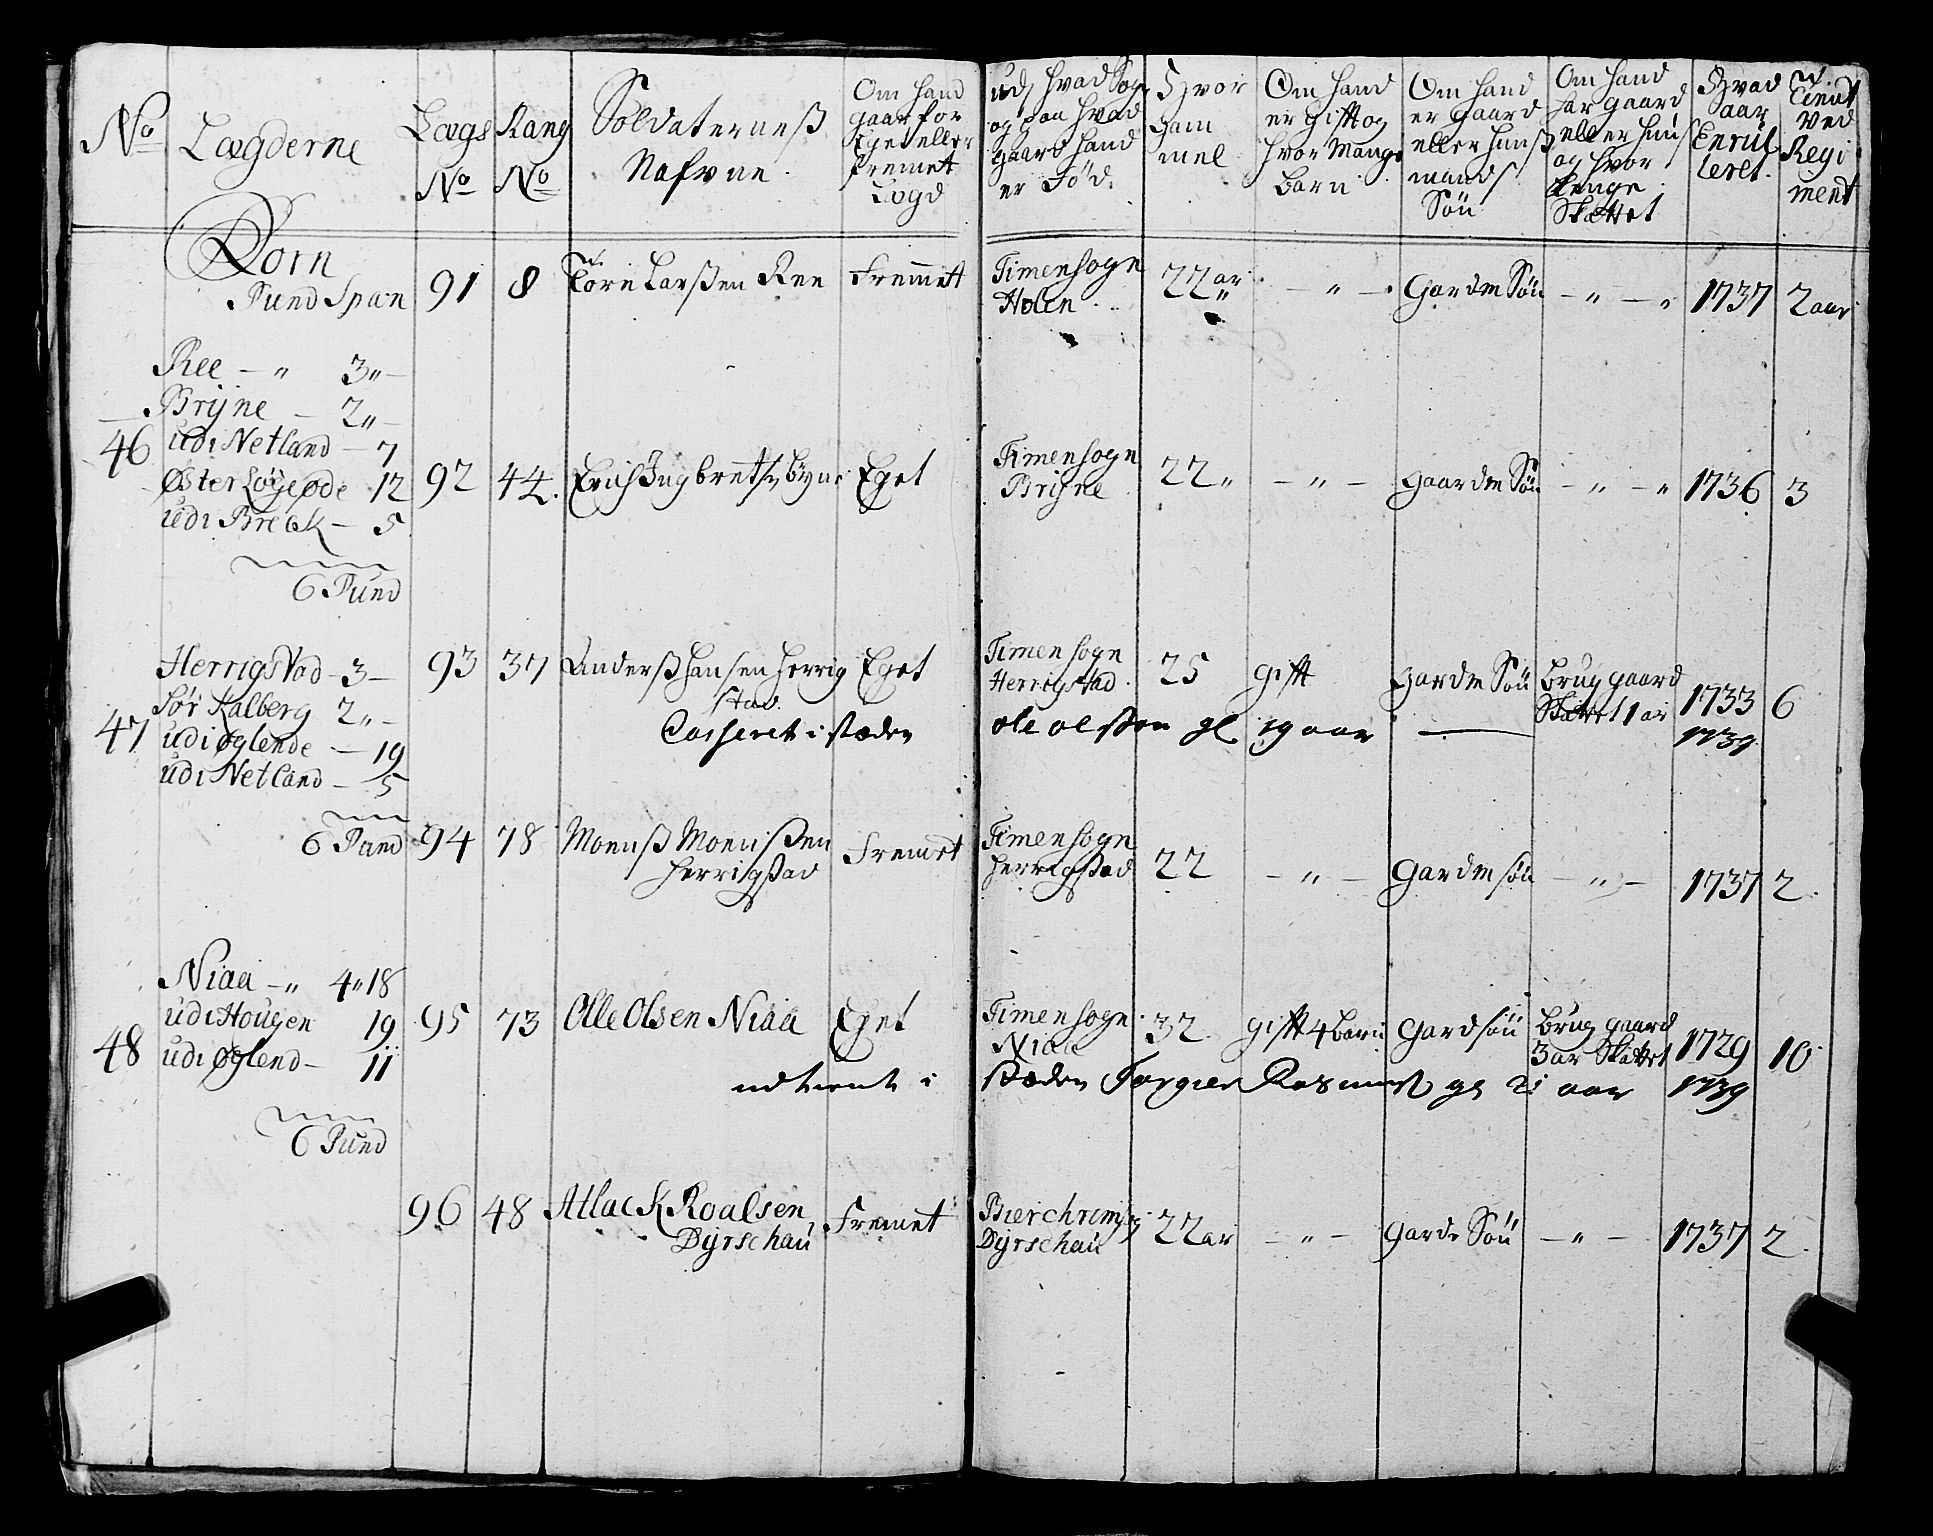 No
Lægderne
Lægs
No
Rang
No
Soldaterneß
Nafvne
Om hand
gaar for
Eget eller
fremet
Lægd
udj hvad Sogn
og paa hvad
gaard hand
er Fød.
Hvor
gam
mel
Om hand
er Gift og
hvor Mange
barn
Om hand
er gaard
eller huuß
mands
Søn
Om hand
har gaard
eller huuß
og hvor
Lenge
Skattet
Hvad
aar
Enrul
leret.
Tient
ved
Regi
ment
Korn
Pund Span
91 8 Tore Larßen Ree Fremett Timensogn
Holen
22 ar - " - Gardm Søn - " - " 1737 2 aar
Ree - " 3 " -
Brÿne - 2 " -
46 udi Netland - 7
Øster Løgeøde 12
udi Breck - 5
6 Pund
92 44. Erich Ingbretß Byne Eget Timensogn
Brÿne
22 " - " - gaardm Søn - " - " 1736 3
47 Herrigstad - 3 -
Sør Kalberg 2 " -
udi øglende - 19
udi Netland - 5
6 Pund
93 37 Anderß Hansen Herrig
stad
Eget Timensogn
Herrigstad
25 gift gardm Søn brug gaard
Skattet 1 ar
1733 6
Casseret i stæden ole olssen gl 19 aar 1739
94 78 Monß Monßen
Herrigstad
Fremet Timensogn
Herrigstad
22 - " - Gardm søn - " - 1737 2.
48 Niaa - " 4 " 18
udi Hougen 19
udi Øglend - 11
6 Pund
95 73 Olle Olsen Niaa Eget Timensogn
Niaa
32 gift 4 barn Gardsøn brug gaard
3 ar Skattet
1729 10
udtient i stæden Torgier Rasmusß gl 21 aar 1739
96 48 Atlack Roalsen
Dÿrschau
Fremet Dÿrschau
22 ar - " - Garde Søn - " - 1737 2.